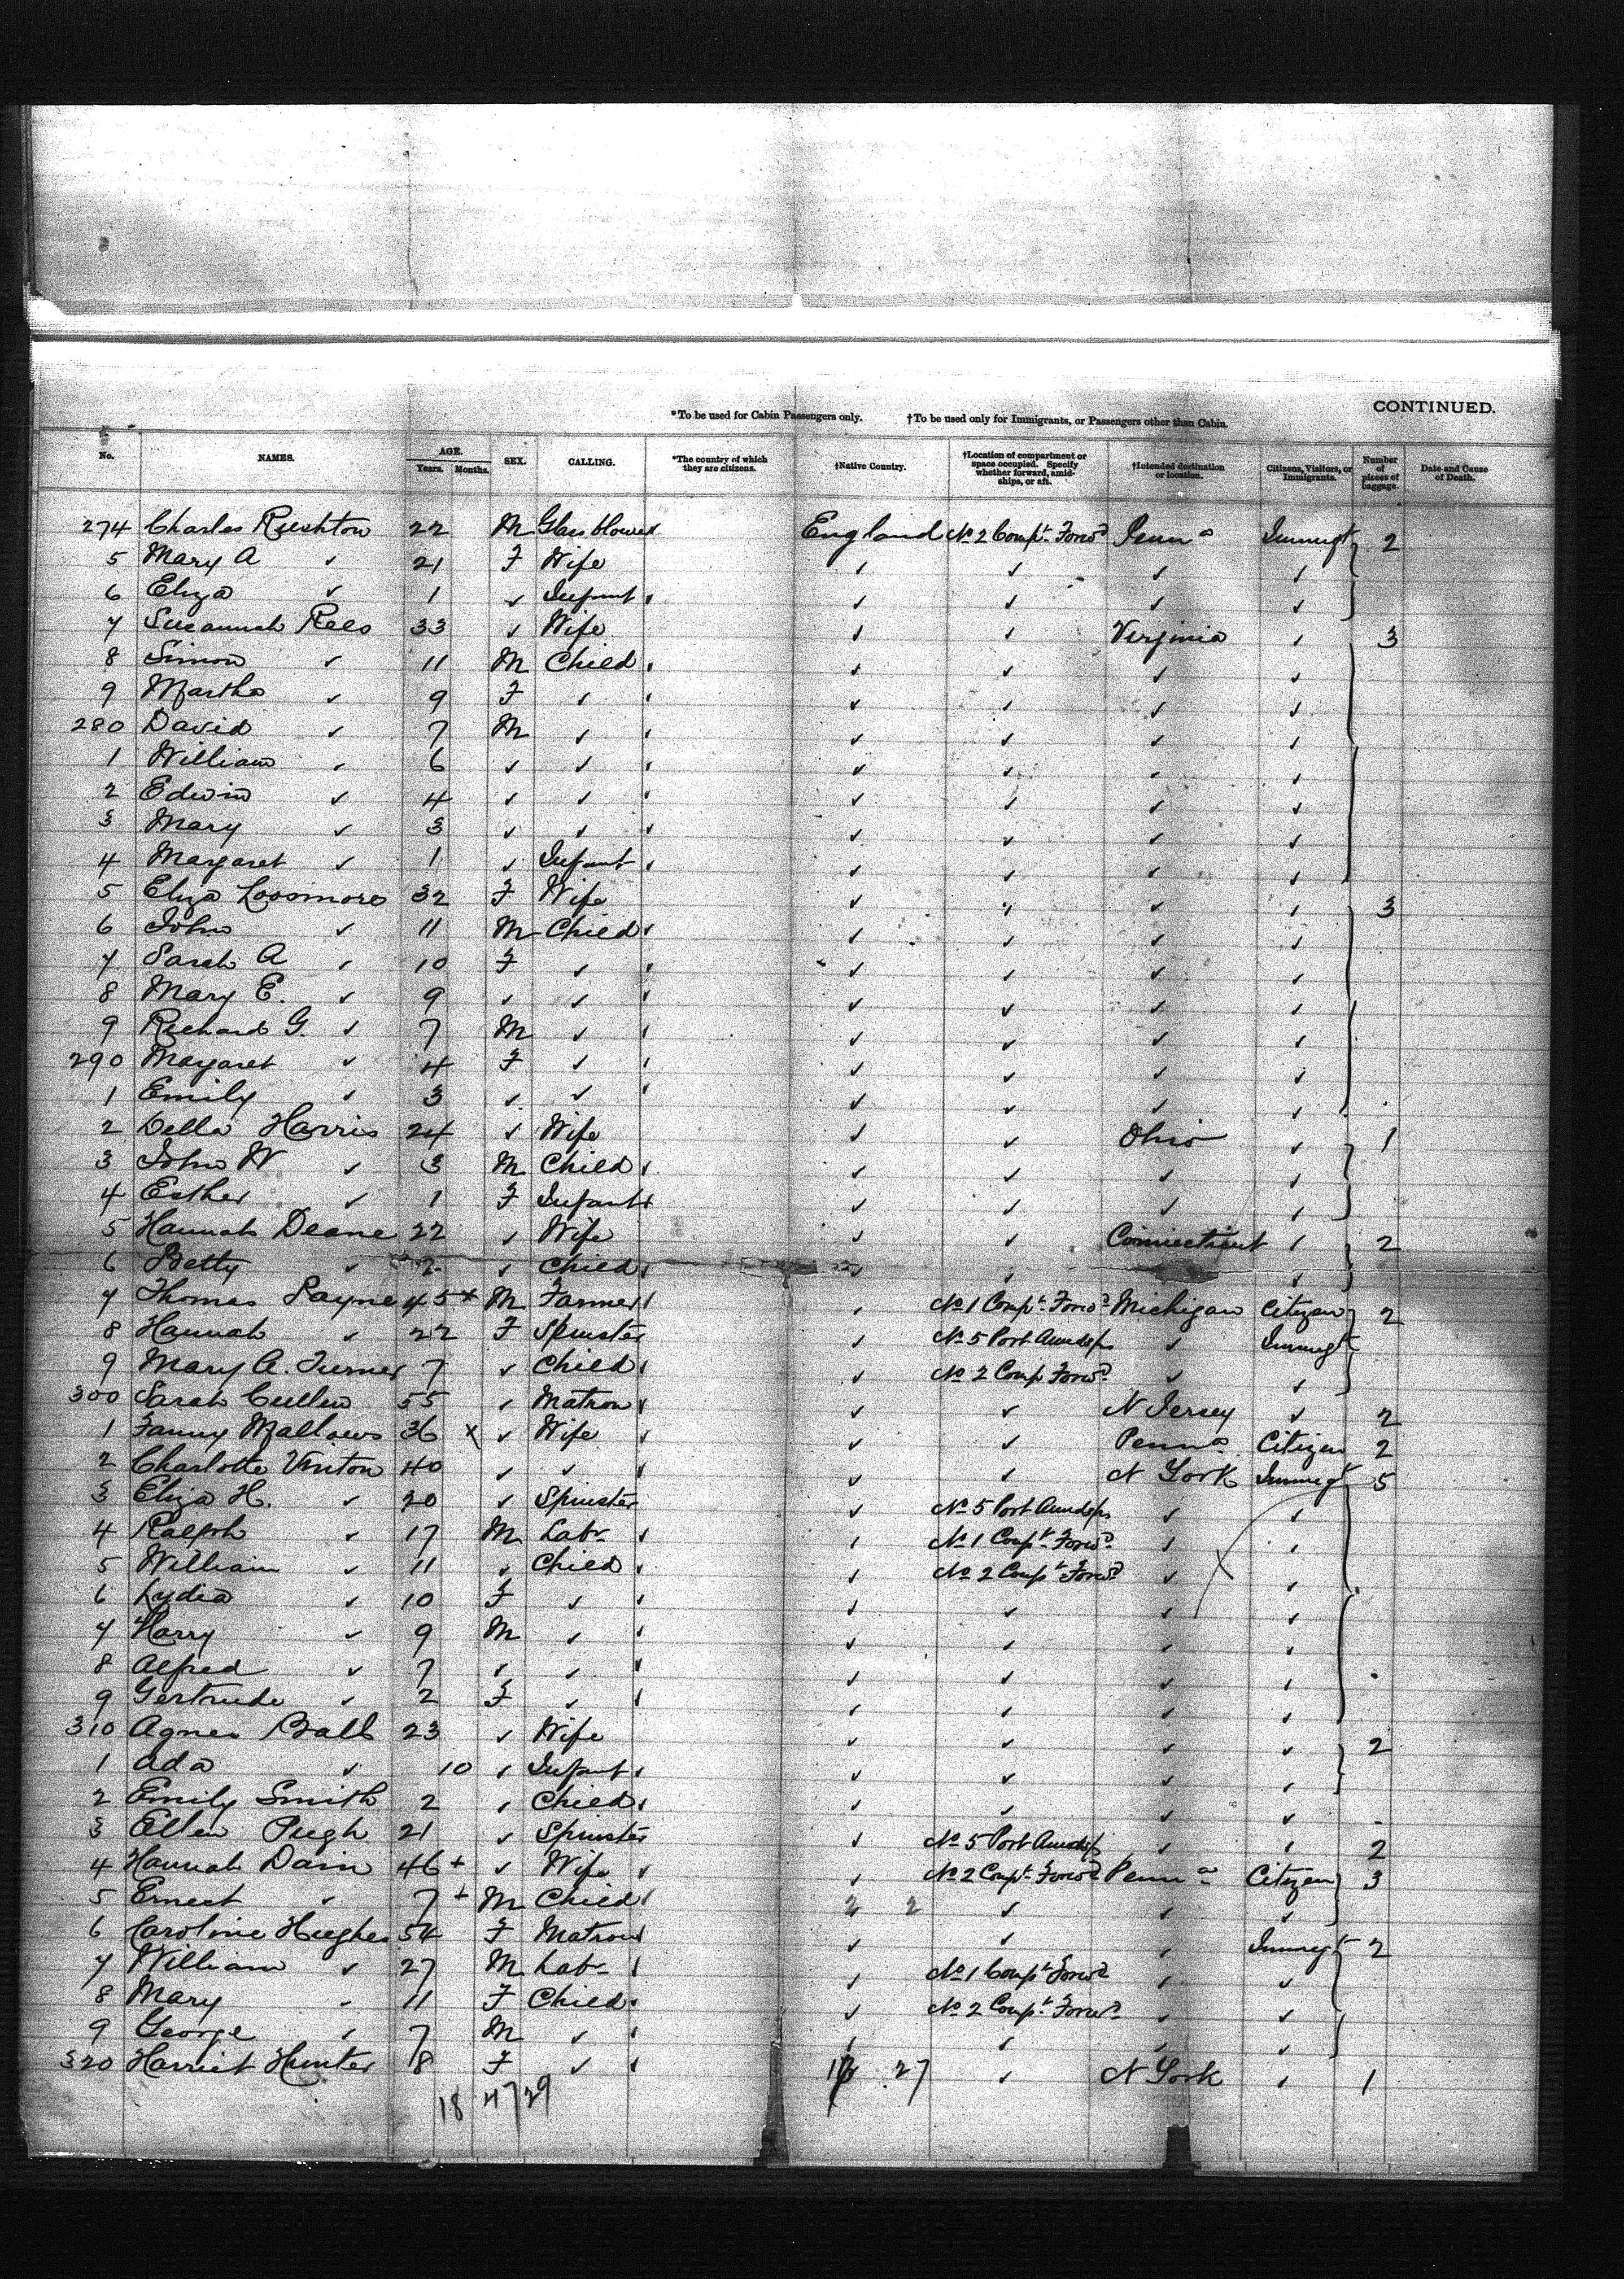 CONTINUED.
*To be used for Cabin Passengers only. †To be used only for Immigrants, or Passengers other than Cabin.
No. NAMES. AGE. Years. Months. SEX. CALLING. *The country of which they are citizens. †Native Country. †Location of compartment or space occupied. Specify whether forward, amidships, or aft. †Intended destination or location. Citizens, Visitors, or Immigrants. Number of pieces of baggage. Date and Cause of Death.
274 Charles Rushton 22 M Glass blower England No 2 Compt. Forwd Penna Immigt 2
5 Mary A ✓ 21 F Wife ✓ ✓ ✓ ✓
6 Eliza ✓ 1 ✓ Infant ✓ ✓ ✓ ✓
7 Susannah Rees 33 ✓ Wife ✓ ✓ Virginia ✓ 3
8 Simon ✓ 11 M Child ✓ ✓ ✓ ✓
9 Martha ✓ 9 F ✓ ✓ ✓ ✓ ✓
280 David ✓ 7 M ✓ ✓ ✓ ✓ ✓
1 William ✓ 6 ✓ ✓ ✓ ✓ ✓ ✓
2 Edwin ✓ 4 ✓ ✓ ✓ ✓ ✓ ✓
3 Mary ✓ 3 ✓ ✓ ✓ ✓ ✓ ✓
4 Margaret ✓ 1 ✓ Infant ✓ ✓ ✓ ✓
5 Eliza Loosmore 32 F Wife ✓ ✓ ✓ ✓ 3
6 John ✓ 11 M Child ✓ ✓ ✓ ✓
7 Sarah A ✓ 10 F ✓ ✓ ✓ ✓ ✓
8 Mary E. ✓ 9 ✓ ✓ ✓ ✓ ✓ ✓
9 Richard G. ✓ 7 M ✓ ✓ ✓ ✓ ✓
290 Margaret ✓ 4 F ✓ ✓ ✓ ✓ ✓
1 Emily ✓ 3 ✓ ✓ ✓ ✓ ✓ ✓
2 Della Harris 24 ✓ Wife ✓ ✓ Ohio ✓ 1
3 John W ✓ 3 M Child ✓ ✓ ✓ ✓
4 Esther ✓ 1 F Infant ✓ ✓ ✓ ✓
5 Hannah Deane 22 ✓ Wife ✓ ✓ Connecticut ✓ 2
6 Betty ✓ 2 ✓ Child ✓ ✓ ✓
7 Thomas Payne 45 x M Farmer ✓ No 1 Compt. Forwd Michigan Citizen 2
8 Hannah ✓ 22 F Spinster ✓ No 5 Port Amidsps ✓ Immigt
9 Mary A. Turner 7 ✓ Child ✓ No 2 Comp Forwd ✓ ✓
300 Sarah Cullen 55 ✓ Matron ✓ ✓ N Jersey ✓ 2
1 Fanny Mathews 36 x ✓ Wife ✓ ✓ Penna Citizen 2
2 Charlotte Vinton 40 ✓ ✓ ✓ ✓ N York Immigt 5
3 Eliza H. ✓ 20 ✓ Spinster ✓ No 5 Port Amidsps ✓ ✓
4 Ralph ✓ 17 M Labr ✓ No 1 Compt Forwd ✓ ✓
5 William ✓ 11 ✓ Child ✓ No 2 Compt Forwd ✓ ✓
6 Lydia ✓ 10 F ✓ ✓ ✓ ✓ ✓
7 Harry ✓ 9 M ✓ ✓ ✓ ✓ ✓
8 Alfred ✓ 7 ✓ ✓ ✓ ✓ ✓ ✓
9 Gertrude ✓ 2 F ✓ ✓ ✓ ✓ ✓
310 Agnes Ball 23 ✓ Wife ✓ ✓ ✓ ✓ 2
1 Ada ✓ 10 ✓ Infant ✓ ✓ ✓ ✓
2 Emily Smith 2 ✓ Child ✓ ✓ ✓ ✓
3 Ellen Pugh 21 ✓ Spinster ✓ No 5 Port Amidsp ✓ ✓ 2
4 Hannah Dain 46 + ✓ Wife ✓ No 2 Compt. Forwd Penna Citizen 3
5 Ernest ✓ 7 + M Child 2 2 ✓ ✓ ✓
6 Caroline Hughes 54 F Matron ✓ ✓ ✓ Immigt 2
7 William ✓ 27 M Labr ✓ No 1 Compt Forwd ✓ ✓
8 Mary ✓ 11 F Child ✓ No 2 Compt. Forwd ✓ ✓
9 George ✓ 7 M ✓ ✓ ✓ ✓ ✓
320 Harriet Hunter 18 F ✓ 27 ✓ N York ✓ 1
18 47 29